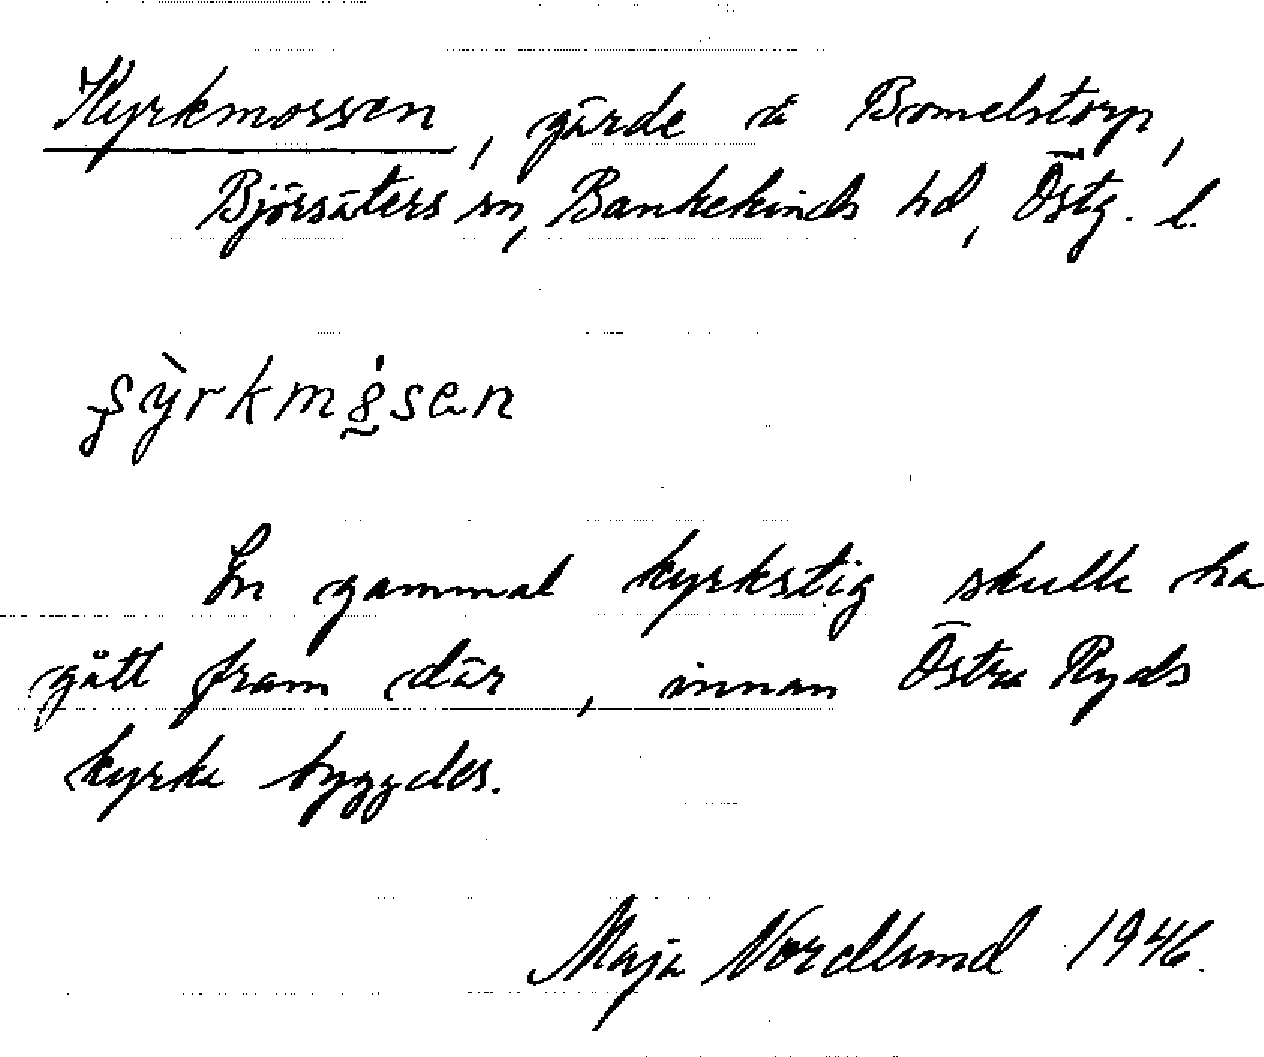 Kyrkmossen, gärde å Bomelstorp,
Björsäters sn, Bankekinds hd, Östg. l.
En gammal kyrkstig skulle ha
gått fram där, innan Östra Ryds
kyrka byggdes.
Maja Nordlund 1946.